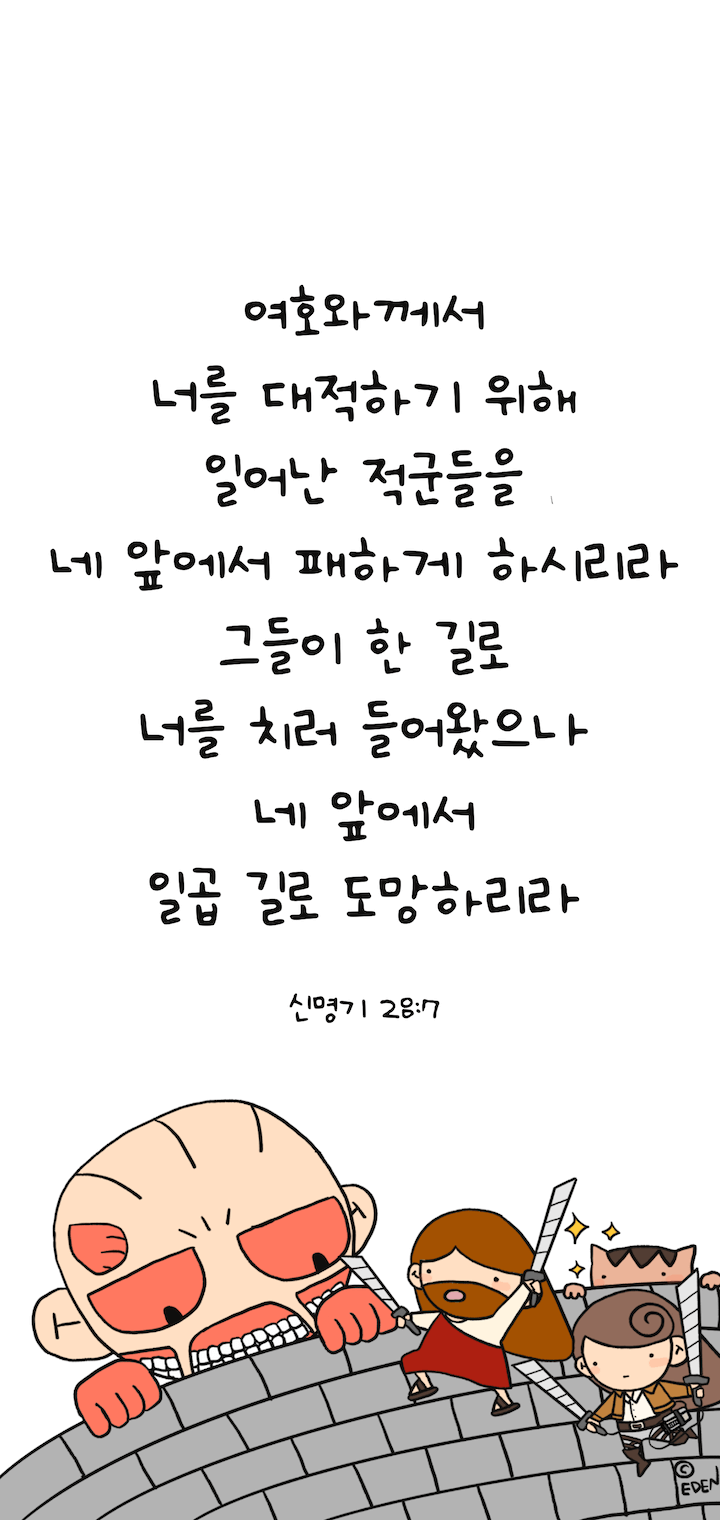 여호와께서
너를 대적하기 위해
일어난 적군들을
네 앞에서 패하게 하시리라
그들이 한 길로
너를 치러 들어왔으나
네 앞에서
일곱 길로 도망하리라
신명기 28:7
© EDEN